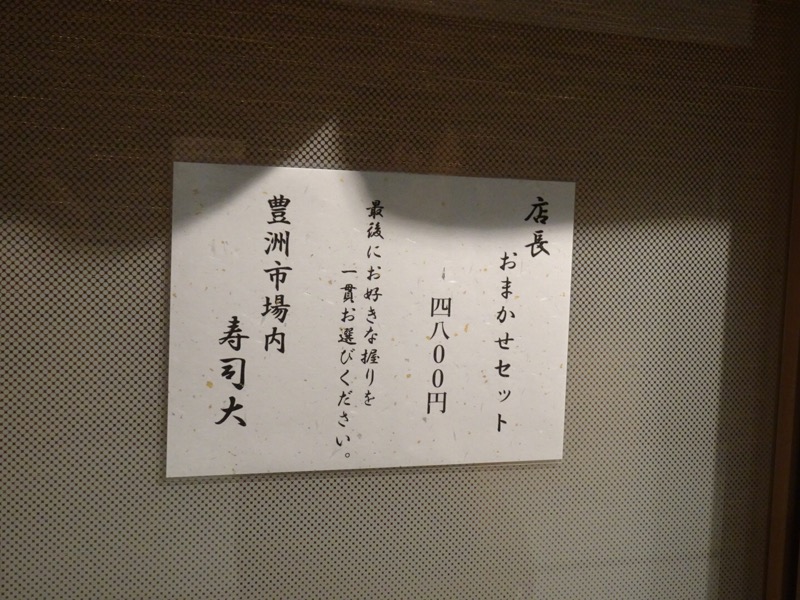 店長
おまかせセット
四八００円
最後にお好きな握りを
一貫お選びください。
豊洲市場内
寿司大